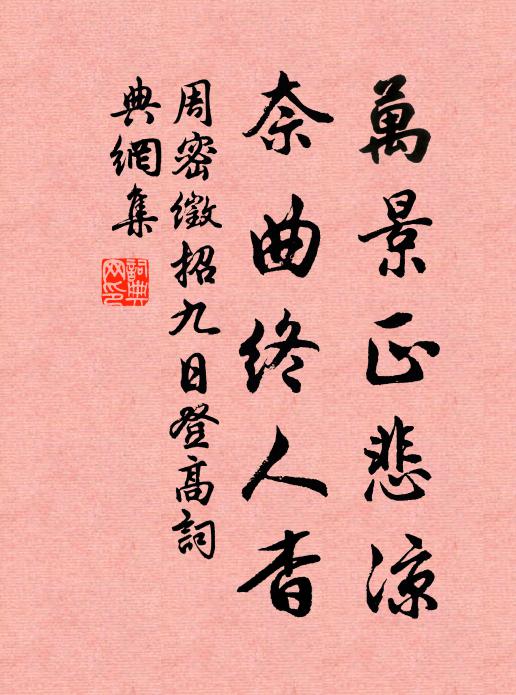 萬景正悲涼
奈曲終人杳
周密徵招九日登高詞
典網集
詞典網印